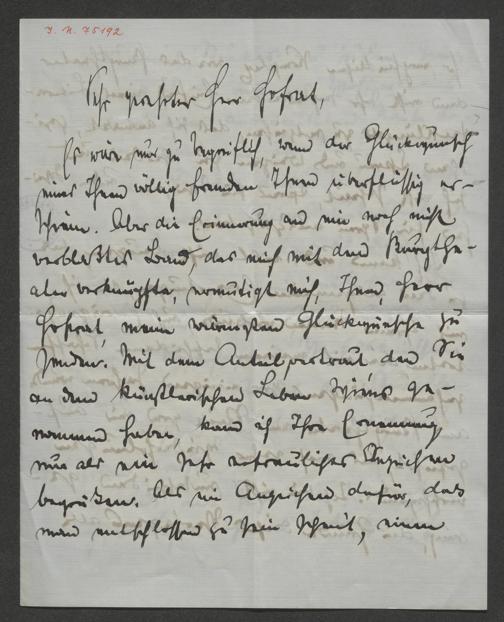 J. N. 75192
Sehr geehrter Herr Hofrat,
Es wäre nur zu begreiflich, wenn der Glückwunsch
eines Ihnen völlig fremden Ihnen überflüssig er-
schiene. Aber die Erinnerung an ein noch nicht
verblaßtes Band, das mich mit dem Burgthe-
ater verknüpfte, ermutigt mich, Ihnen, Herr
Hofrat, meine wärmsten Glückwünsche zu
senden. Mit dem Anteil vertraut, den Sie
an dem künstlerischen Leben Wiens ge-
nommen haben, kann ich Ihre Ernennung
nur als ein sehr erfreuliches Anzeichen
begrüßen. Als ein Anzeichen dafür, daß
man entschlossen zu sein scheint, einem